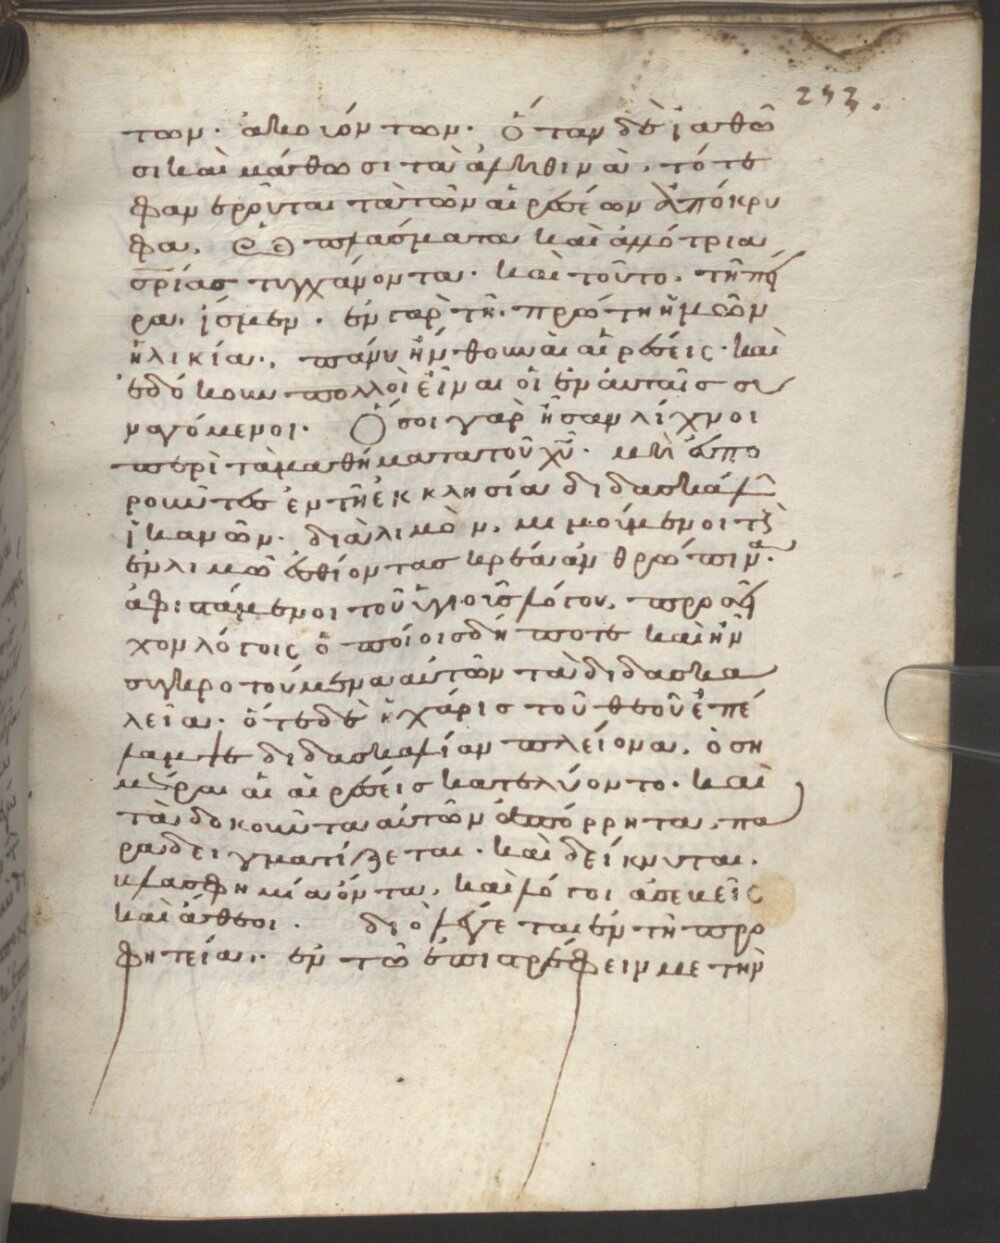 253.
των· ἀκουόντων· Ὅταν δὲ ἰαθῶ
σι καὶ μάθωσι τὰ ἀληθινὰ, τότε
φανεροῦνται τὰ τῶν αἱρέσεων ἀπόκρυ
φα, ὡς πλάσματα καὶ ἀλλότρια
σ̅ρίας τυγχάνοντα· καὶ τοῦτο, τῆ πεί
ρα· ἴσμεν· ἐν γὰρ τῆ· πρώτη ἡμῶν
ἡλικία, πάνυ ἤνθουν αἱ αἱρέσεις· καὶ
ἐδόκουν πολλοὶ εἶναι οἱ ἐν αὐταῖς συ
ναγόμενοι· Ὅσοι γὰρ ἦσαν λίχνοι
περὶ τὰ μαθήματα τοῦ χ̅υ̅· μὴ εὐπο
ροῦντες ἐν τῆ ἐκκλησία διδασκάλων
ἱκανῶν· διὰ λιμὸν, μιμούμενοι τοὺς
ἐν λιμῶ ἐσθίοντας κρέα ἀνθρώπινα·
ἀφιστάμενοι τοῦ ὑγιοῦς λόγου, προσεῖ
χον λόγοις ὁποίοις δήποτε καὶ ἦν
συγκροτούμενα αὐτῶν τὰ διδασκα
λεῖα· ὅτε δὲ ἡ χάρις τοῦ θεοῦ ἐπέ
λαμψε διδασκαλίαν πλείονα, ὁση
μέραι αἱ αἱρέσεις κατελύοντο· καὶ
τὰ δοκοῦντα αὐτῶν ἀπόρρητα, πα
ραδειγματίζεται· καὶ δείκνυται,
βλασφημία ὄντα, καὶ λόγοι ἀσεβεῖς
καὶ ἄθεοι. διὸ λέγεται ἐν τῆ προ
φητεία, ἐν τῶ ἐπιστρέφειν με τὴν